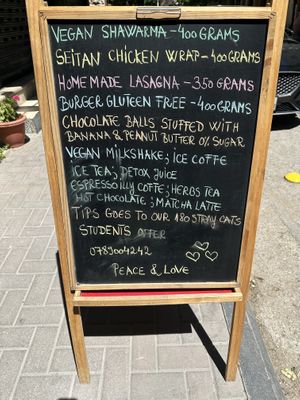 VEGAN SHAWARMA - 400 GRAMS
SEITAN CHICKEN WRAP - 400 GRAMS
HOME MADE LASAGNA - 350 GRAMS
BURGER GLUTEEN FREE - 400 GRAMS
CHOCOLATE BALLS STUFFED WITH
BANANA & PEANUT BUTTER 0% SUGAR
VEGAN MILKSHAKE; ICE COFFE
ICE TEA; DETOX JUICE
ESPRESSO ILLY COFFE; HERBS TEA
HOT CHOCOLATE; MATCHA LATTE
TIPS GOES TO OUR 180 STRAY CATS
STUDENTS OFFER
0789004242
PEACE & LOVE